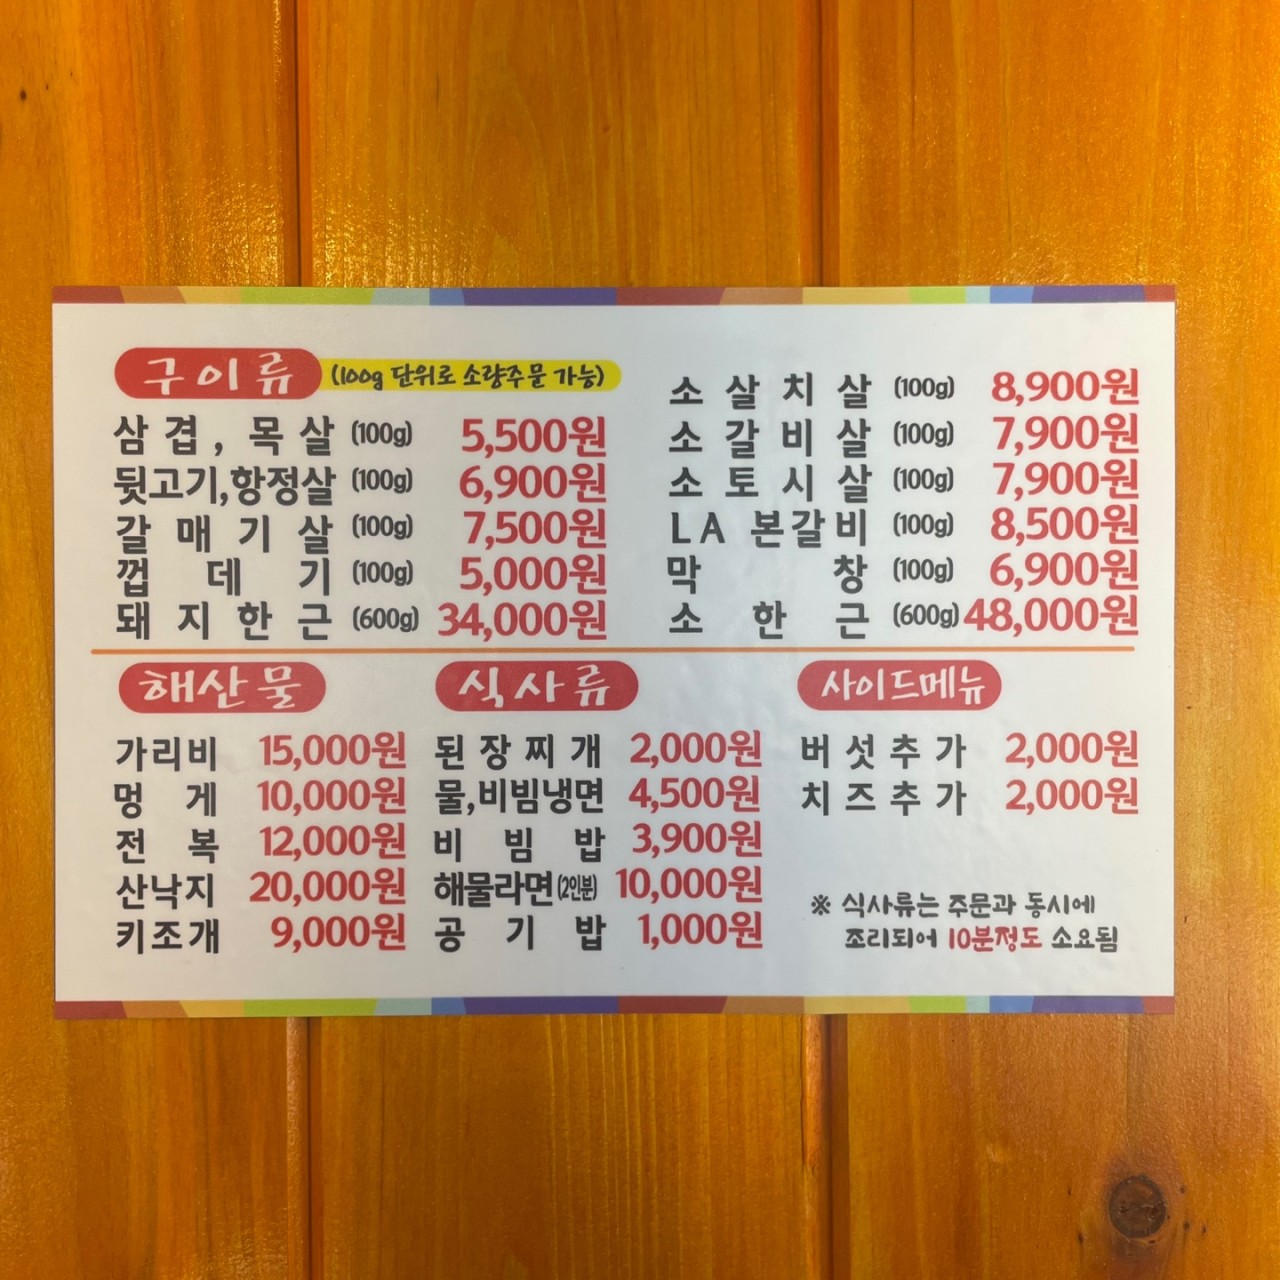 구이류 (100g 단위로 소량주문 가능)
삼겹, 목살 (100g) 5,500원
뒷고기,항정살 (100g) 6,900원
갈매기살 (100g) 7,500원
껍데기 (100g) 5,000원
돼지한근 (600g) 34,000원
소살치살 (100g) 8,900원
소갈비살 (100g) 7,900원
소토시살 (100g) 7,900원
LA 본갈비 (100g) 8,500원
막창 (100g) 6,900원
소한근 (600g) 48,000원
해산물
가리비 15,000원
멍게 10,000원
전복 12,000원
산낙지 20,000원
키조개 9,000원
식사류
된장찌개 2,000원
물,비빔냉면 4,500원
비빔밥 3,900원
해물라면(2인분) 10,000원
공기밥 1,000원
사이드메뉴
버섯추가 2,000원
치즈추가 2,000원
※ 식사류는 주문과 동시에
조리되어 10분정도 소요됨